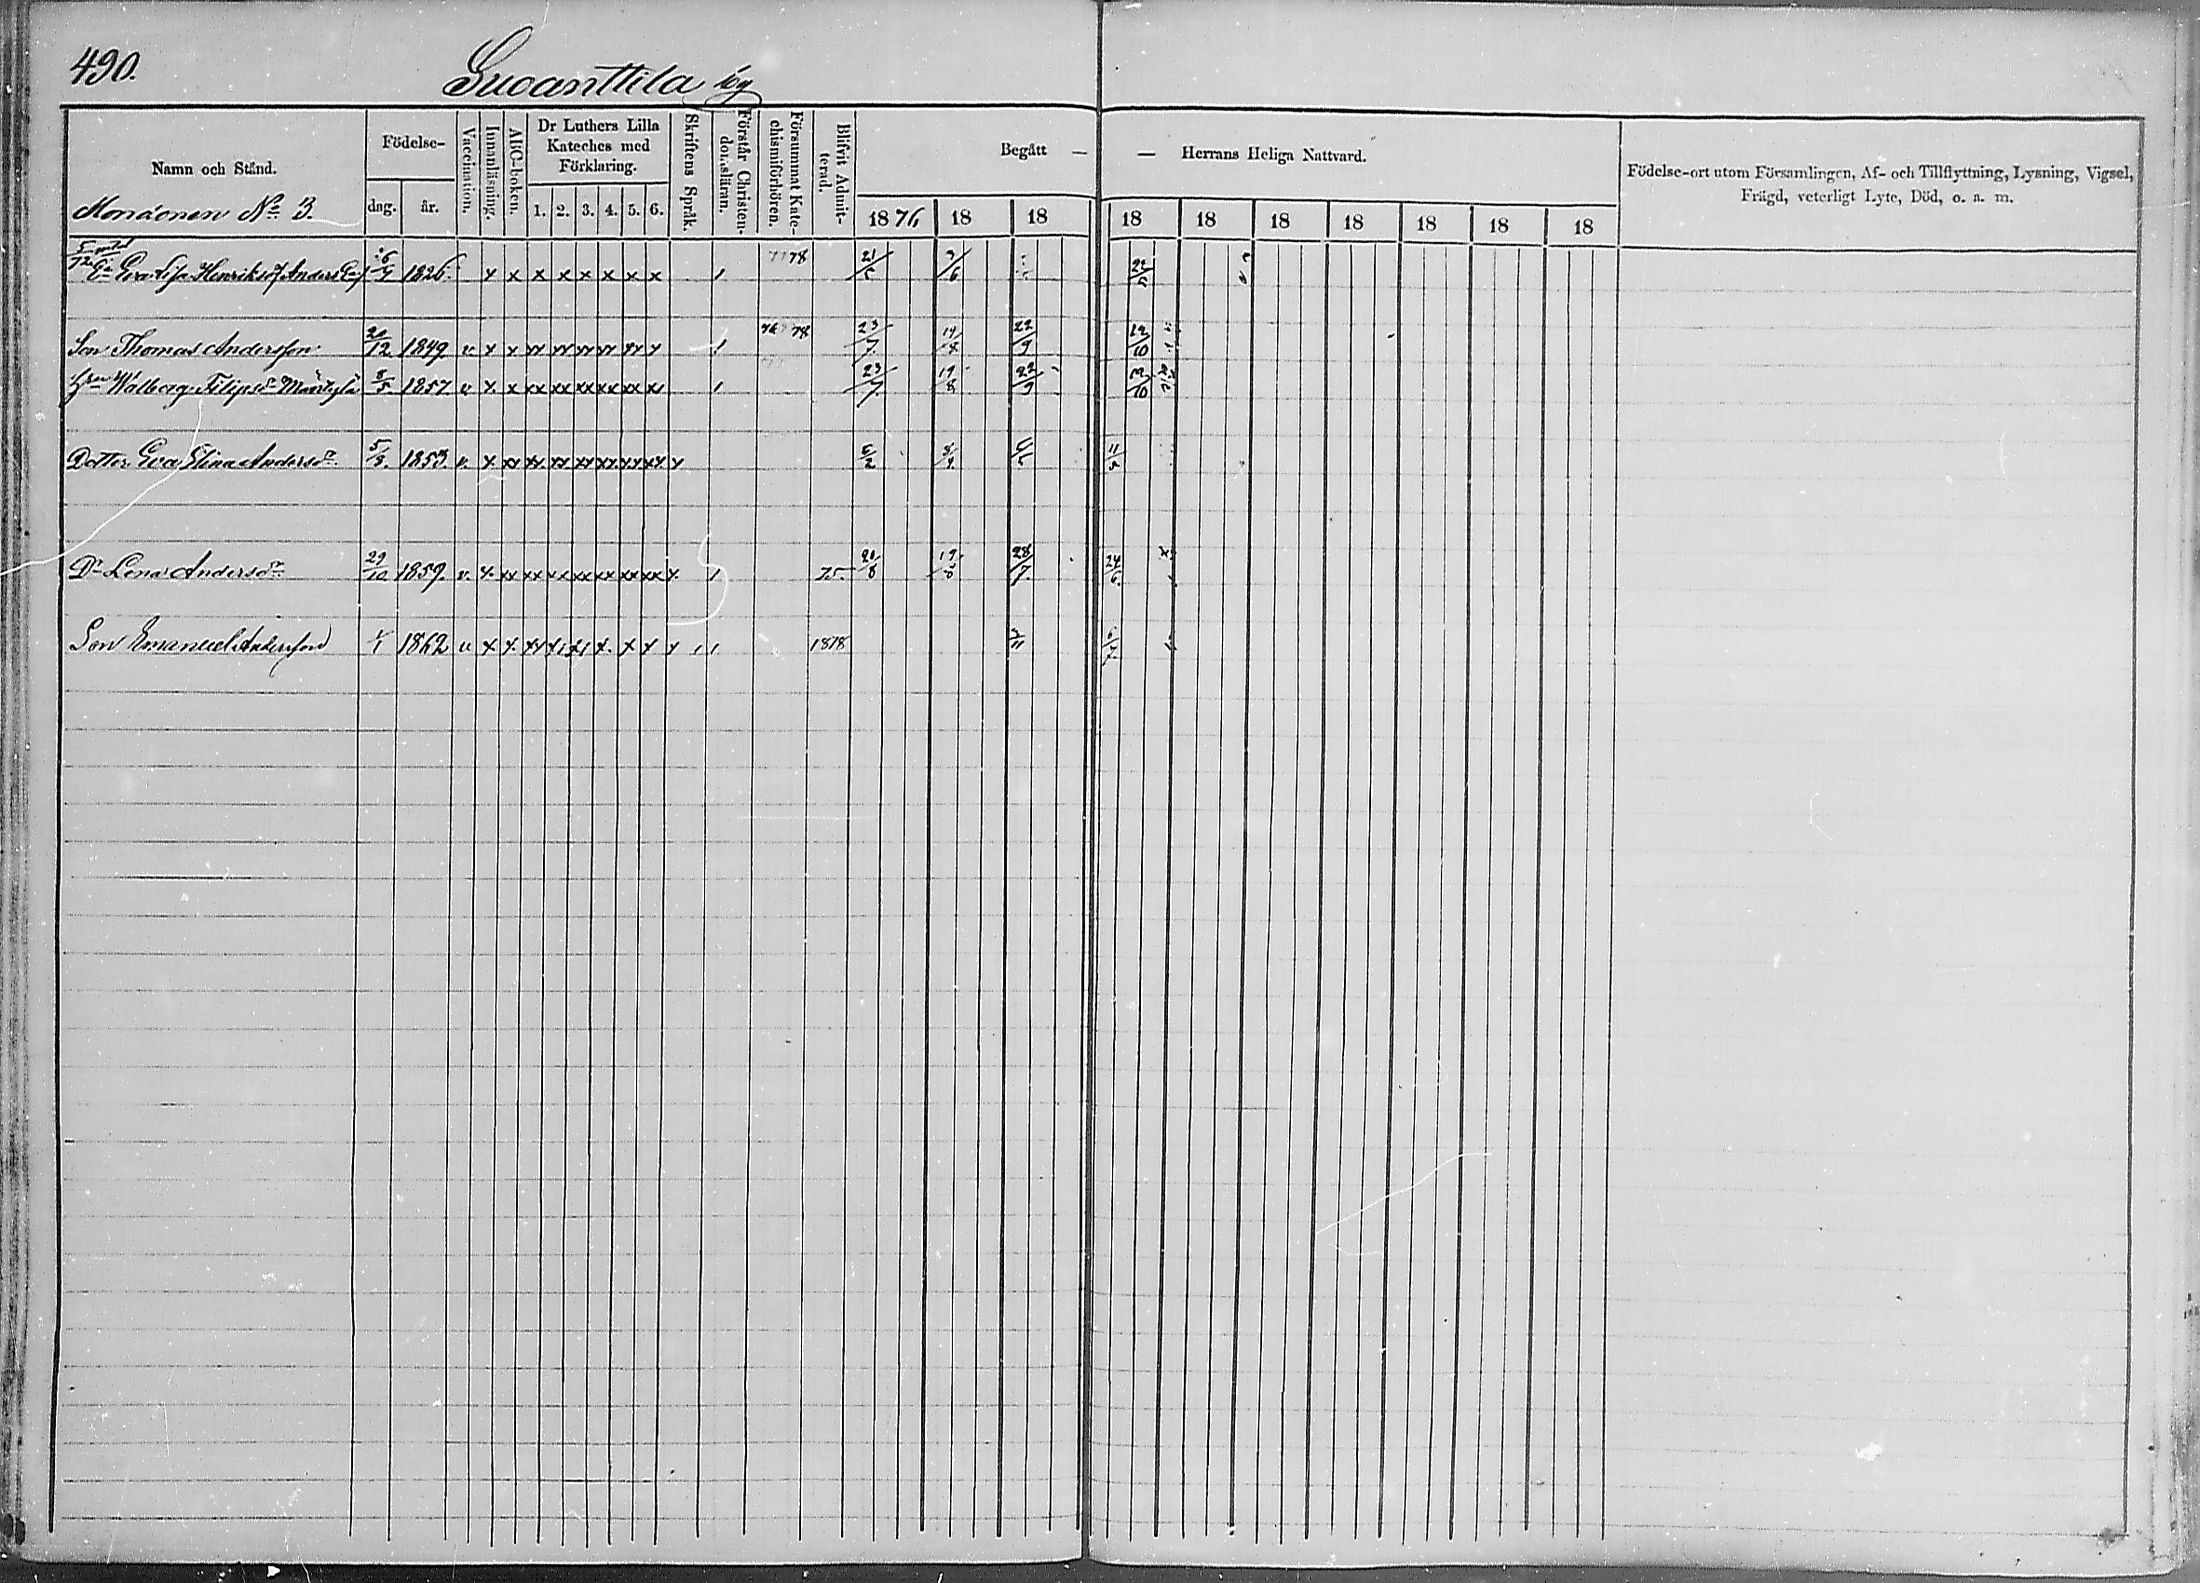 490.
Suoanttila by
Namn och Stånd.
Födelse-
dag.
år.
Vaccination.
Innanläsning.
ABC-boken.
Dr Luthers Lilla
Kateches med
Förklaring.
1. 2. 3. 4. 5. 6.
Skriftens Språk.
Förstår Christen-
domsläran.
Försummat Kate-
chismiförhören.
Blifvit Admit-
terad.
Begått —
— Herrans Heliga Nattvard.
Födelse-ort utom Församlingen, Af- och Tillflyttning, Lysning, Vigsel,
Frägd, veterligt Lyte, Död, o. a. m.
No 3.
1876 18 18 18 18 18 18 18 18 18
Eva Lisa Henriksdr Anders 1826. x x x x x x x x 78 21/5 22/5
Son Thomas Andersson 1849 v. x x xx xx xx xx xx x 78 23/7. 19/8 22/9 12/10
Walborg Filipsdr Mäntylä 8/5. 1857. v. x. x xx xx xx xx xx xx 23/7. 19/8 22/9
Dotter Eva Stina Andersdr 5/3. 1853. v. x xx xx. xx xx xx xx xx x
Dr Lena Andersdr 29/10 1859. v. x. xx xx xx xx xx xx xx x. 75. 20/8 19/8 28/7. 24/6.
Son Emanuel Andersson 1/1 1862 v. x x. 1878